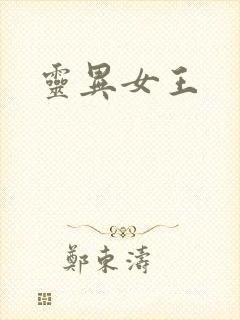 靈異女王
鄭東濤